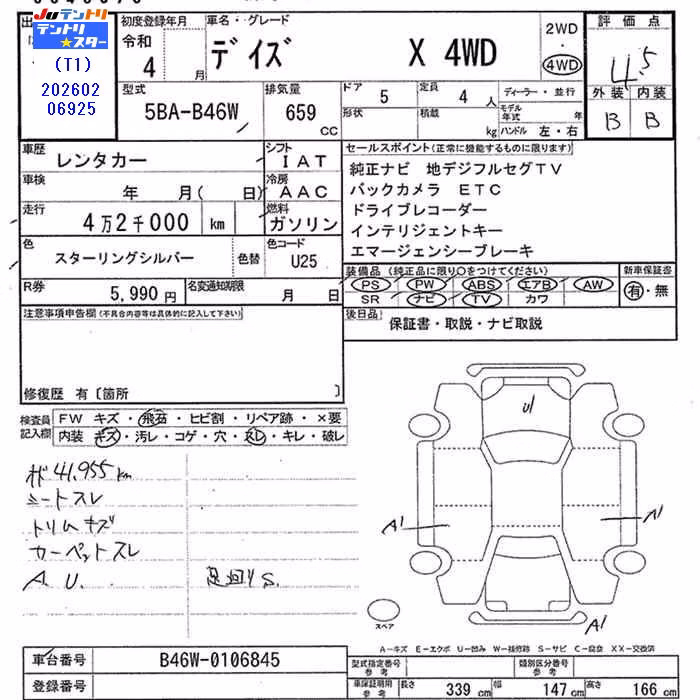 JUテントリ
テントリ★スター
(T1)
202602
06925
初度登録年月
令和
4 月
車名・グレード
デイズ X 4WD
2WD
・
4WD
評価点
4.5
外装 内装
B B
型式
5BA-B46W
排気量
659
CC
ドア 5
定員 4 人
ディーラー・並行
形状
積載 kg
モデル年式 年
ハンドル 左・右
車歴
レンタカー
シフト
IAT
車検
年 月( 日)
冷房
AAC
走行
4万2千000 km
燃料
ガソリン
色
スターリングシルバー
色替
色コード
U25
R券
5,990 円
名変通知期限
月 日
セールスポイント(正常に機能するものに限ります)
純正ナビ 地デジフルセグTV
バックカメラ ETC
ドライブレコーダー
インテリジェントキー
エマージェンシーブレーキ
装備品(純正品に限り○をつけてください)
PS PW ABS エアB AW
SR ナビ TV カワ
新車保証書
有・無
後日品
保証書・取説・ナビ取説
注意事項申告欄(不具合内容等は具体的に記入して下さい)
修復歴 有〔箇所 〕
検査員記入欄
FW キズ・飛石・ヒビ割・リペア跡・×要
内装 キズ・汚レ・コゲ・穴・スレ・キレ・破レ
41,955km
シートスレ
トリムキズ
カーペットスレ
A. U. 足回りS.
U1
A1
A1
A1
スペア
A-キズ E-エクボ U-凹み W-補修跡 S-サビ C-腐食 XX-交換済
車台番号
B46W-0106845
登録番号
型式指定番号参考
類別区分番号参考
車保証期用参考
長さ 339 cm
幅 147 cm
高さ 166 cm